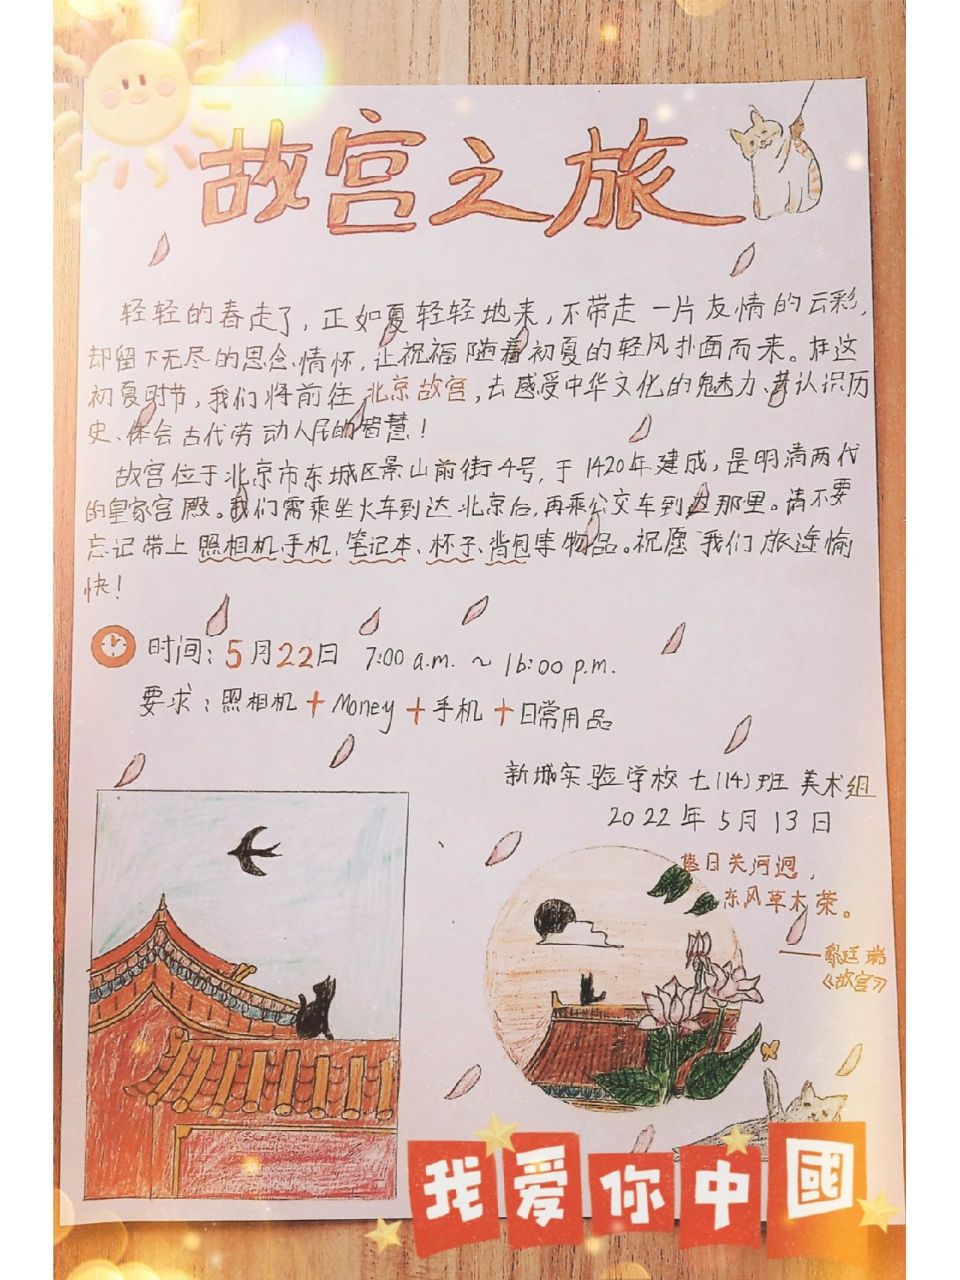 故宫之旅
轻轻的春走了，正如夏轻轻地来，不带走一片友情的云彩，
却留下无尽的思念、情怀，让祝福随着初夏的轻风扑面而来。在这
初夏时节，我们将前往北京故宫，去感受中华文化的魅力、着认识历
史、体会古代劳动人民的智慧！
故宫位于北京市东城区景山前街4号，于1420年建成，是明清两代
的皇家宫殿。我们需乘坐火车到达北京后，再乘公交车到达那里。请不要
忘记带上照相机、手机、笔记本、杯子、背包等物品。祝愿我们旅途愉
快！
时间：5月22日 7:00 a.m. ~ 16:00 p.m.
要求：照相机+Money+手机+日常用品
新城实验学校七(14)班 美术组
2022年5月13日
日关河迥，
东风草木荣。
——黎廷瑞
《故宫》
我爱你中國